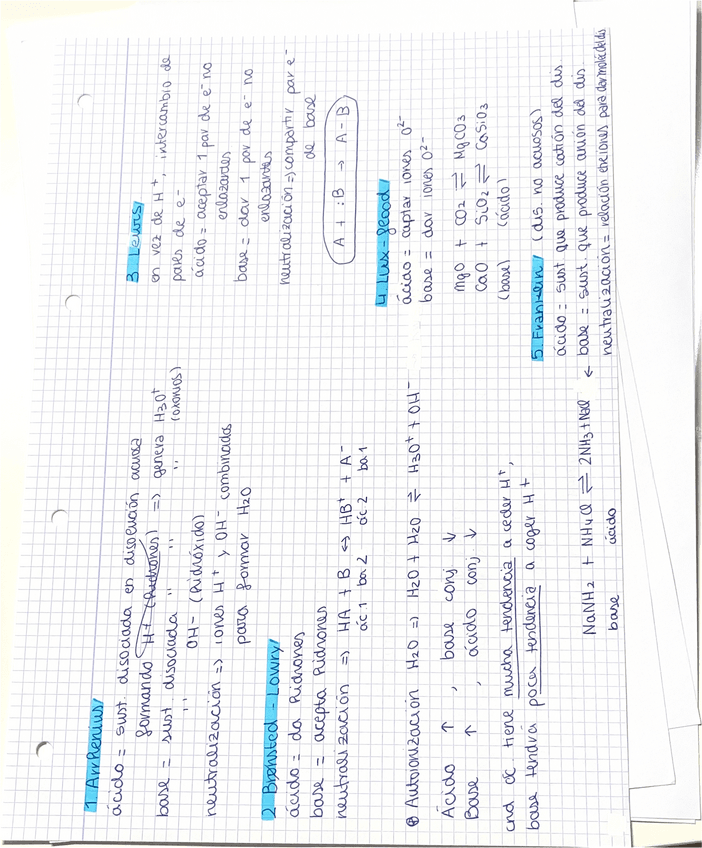 1. Arrhenius
ácido = sust. disociada en disolución acuosa
formando H+ (hidrones) => genera H3O+
(oxonios)
base = sust. disociada " " " "
" OH- (hidróxido)
neutralización => iones H+ y OH- combinados
para formar H2O
2. Brønsted - Lowry
ácido = da hidrones
base = acepta hidrones
neutralización => HA + B ⇔ HB+ + A-
ác.1 ba.2 ác.2 ba.1
Autoionización H2O => H2O + H2O ⇌ H3O+ + OH-
Ácido ↑ , base conj ↓
Base ↑ , ácido conj ↓
cnd ác tiene mucha tendencia a ceder H+,
base tendrá poca tendencia a coger H+
NaNH2 + NH4Cl ⇌ 2NH3 + NaCl ←
base ácido
3. Lewis
en vez de H+, intercambio de
pares de e-
ácido = aceptar 1 par de e- no
enlazantes
base = dar 1 par de e- no
enlazantes
neutralización => compartir par e-
de base
A + :B → A - B
4. Lux-flood
ácido = captar iones O2-
base = dar iones O2-
MgO + CO2 ⇌ MgCO3
CaO + SiO2 ⇌ CaSiO3
(base) (ácido)
5. Franklin (dis. no acuosos)
ácido = sust que produce catión del dis
base = sust. que produce anión del dis.
neutralización = relación entre iones para dar moléculas